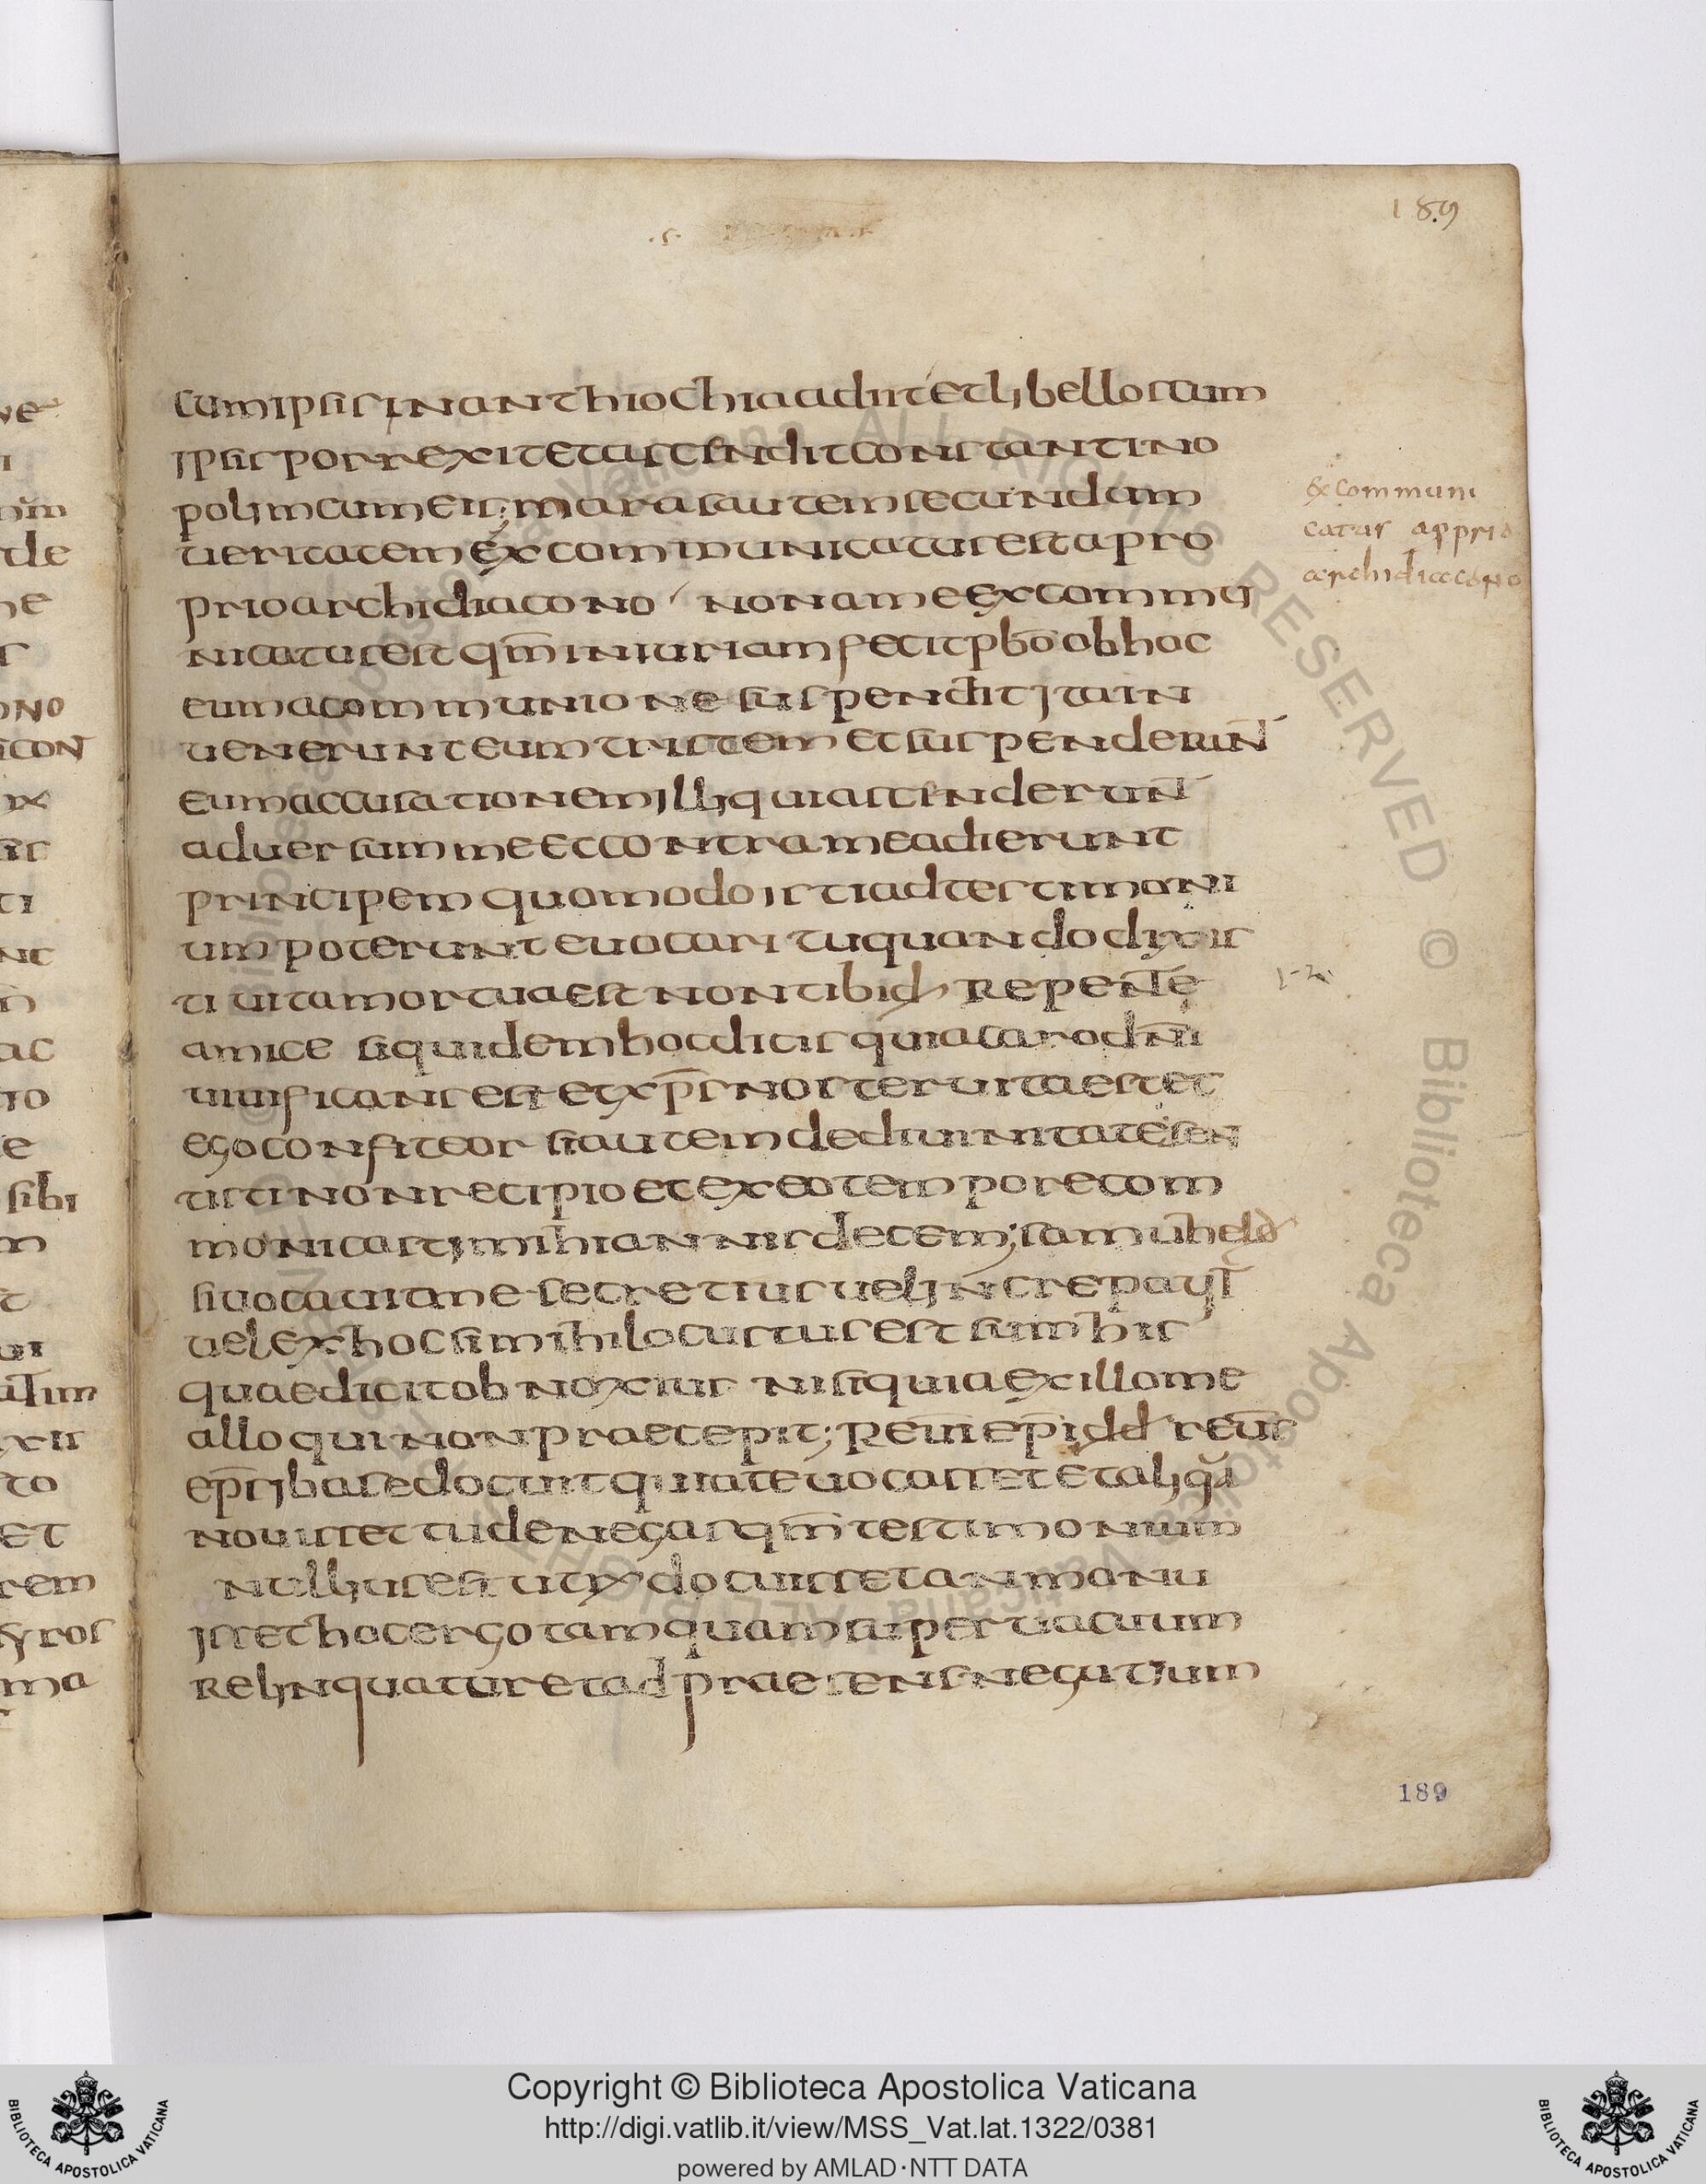 189
cumipsisinanthiochiaadiitetlibelloscum
ipsisporrexitetascenditconstantino
polimcumeis; marasautemsecundum
ueritatemexcommunicatusestapro
prioarchidiacono nonameexcommu
nicatusestqm̄iniuriamfecitpb̄oobhoc
eumacommunionesuspendititain
uenerunteumtristemetsuspenderun̄
eumaccusationemilliquiascenderun̄
aduersummeetcontrameadierunt
principemquomodoistiadtestimoni
umpoteruntevocari tuquandodixis
ti uitamortuaest nontibi
amice siquidemhocdicisquiacarodn̄i
uiuificansestetxp̄snosteruitaestet
egoconfiteor siautemdediuinitatesen
tistinonrecipioetexeotempore
decem; samuhel
siuocauitmesecretiusuelincrepau
uelexhocsimihilocutusest his
quaedicitobnoxius nisiquiaexillome
alloquinonpraecepit; 
ep̄s docuitqui euocassetetaliqua
nouissettudenegasqm̄testimonium
nulliusest docuisset
issethocergotamquamsuperuacuum
relinquaturetadpraesensnegutium
excommuni
catur apprio
archidiacono
189
Copyright © Biblioteca Apostolica Vaticana
http://digi.vatlib.it/view/MSS_Vat.lat.1322/0381
powered by AMLAD·NTT DATA
BIBLIOTECA APOSTOLICA VATICANA
BIBLIOTECA APOSTOLICA VATICANA